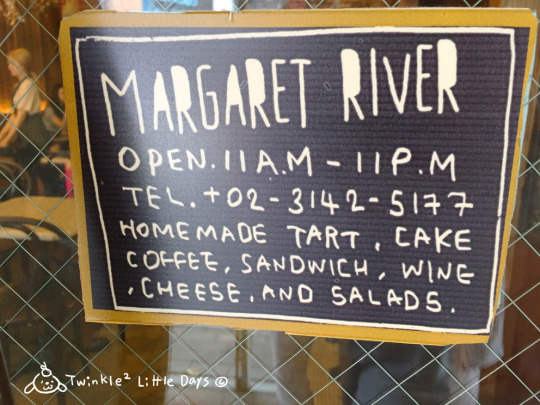 MARGARET RIVER
OPEN.11A.M - 11P.M
TEL.+02-3142-5177
HOMEMADE TART, CAKE
COFFEE, SANDWICH, WINE
, CHEESE, AND SALADS.
Twinkle² Little Days ©